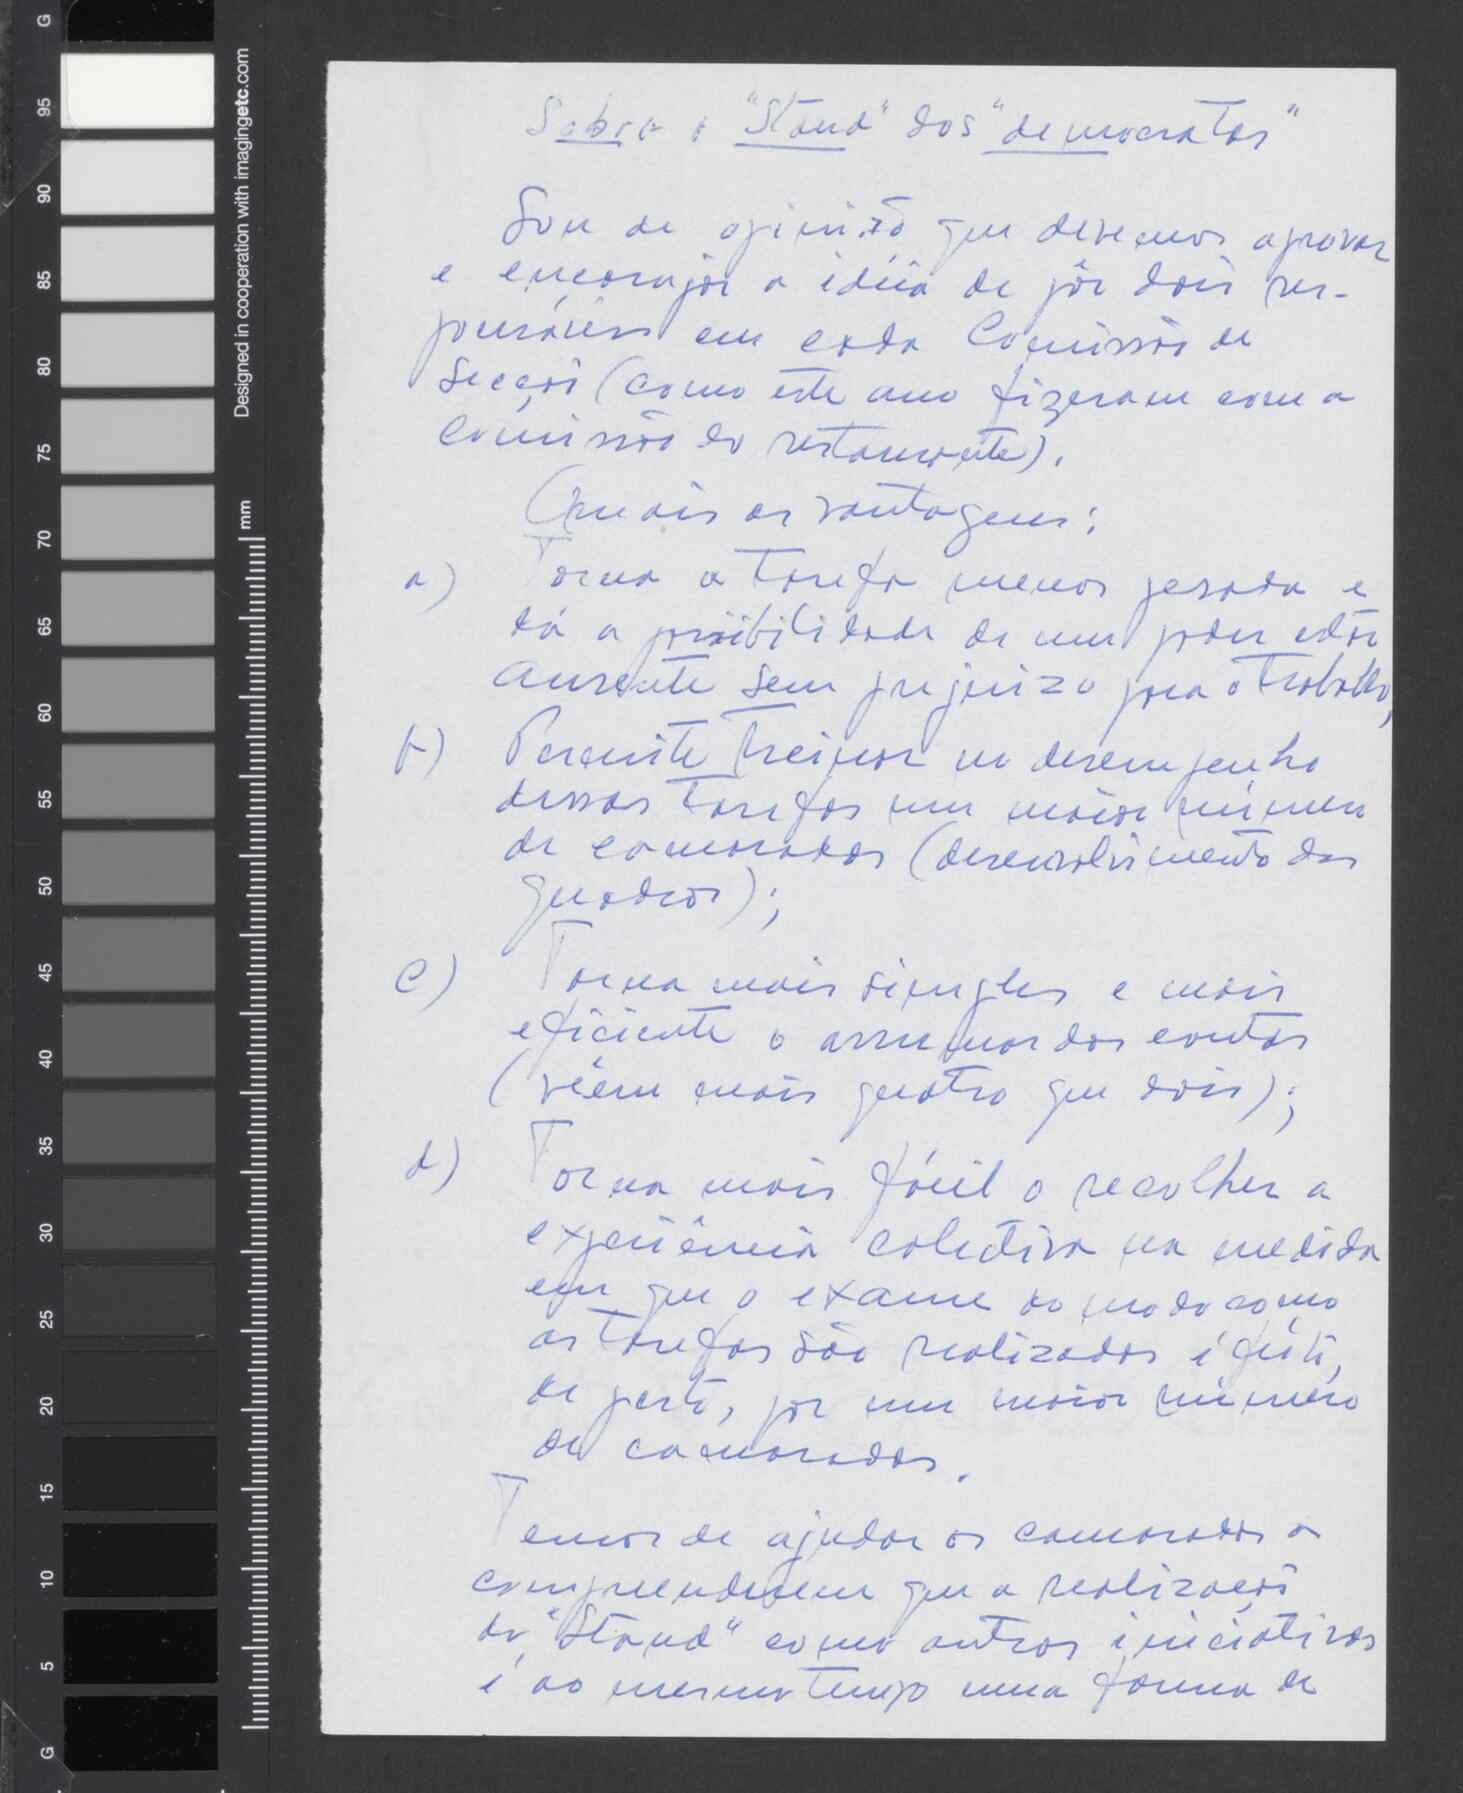 Sobre o "Stand" dos "democratas"
Sou de opinião que devemos aprovar
e encorajar a idéia de pôr dois res-
ponsáveis em cada Comissão de
Secção (como este ano fizeram com a
Comissão do restaurante).
Quais as vantagens:
a) Torna a tarefa menos pesada e
dá a possibilidade de um poder estar
ausente sem prejuizo para o trabalho;
b) Permite treinar no desempenho
dessas tarefas um maior número
de camaradas (desenvolvimento dos
quadros);
c) Torna mais simples e mais
eficiente o arrumar das contas
(vêem mais quatro que dois);
d) Torna mais fácil o recolher a
experiência colectiva na medida
em que o exame do modo como
as tarefas são realizadas é feito,
de perto, por um maior número
de camaradas.
Temos de ajudar os camaradas a
compreenderem que a realização
do "Stand" como outras iniciativas
é ao mesmo tempo uma forma de
G
95
90
85
80
75
70
65
60
55
50
45
40
35
30
25
20
15
10
5
G
Designed in cooperation with imagingetc.com
mm